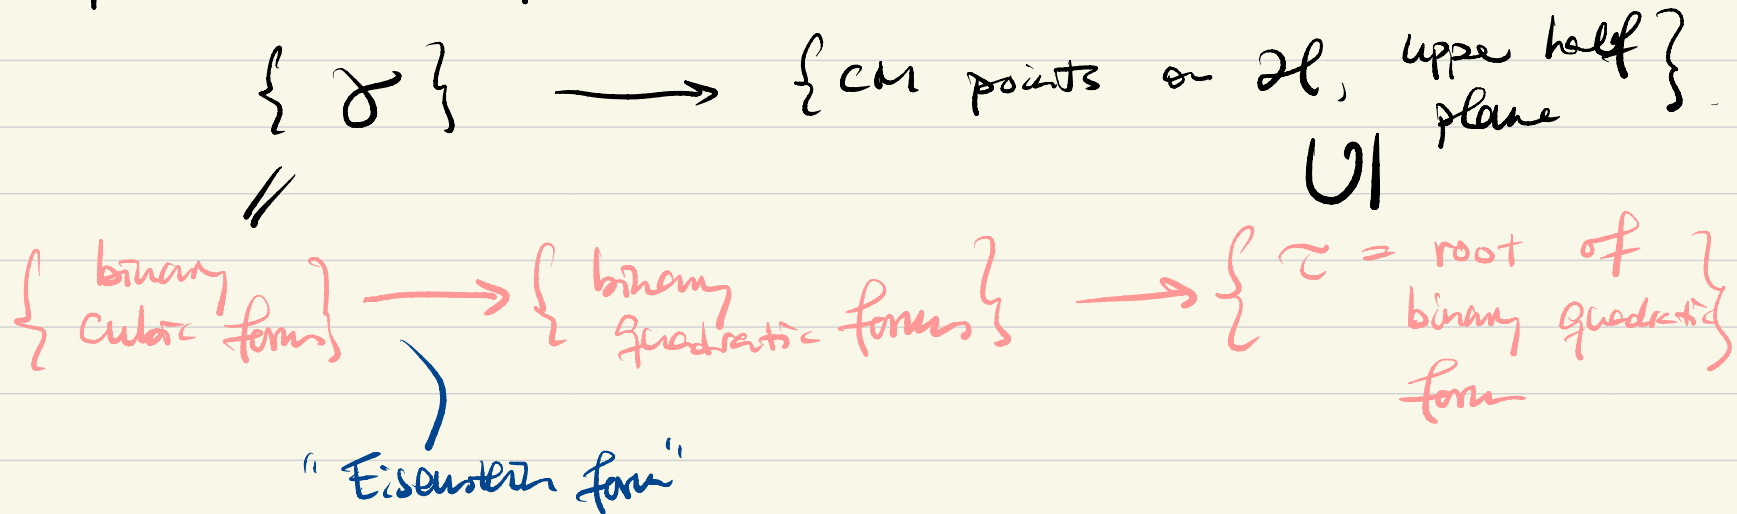 { γ } ⟶ { CM points on ℋ, upper half plane }.
∥ ∪|
{ binary cubic forms } ⟶ { binary quadratic forms } ⟶ { τ = root of binary quadratic form }
"Eisenstein form"